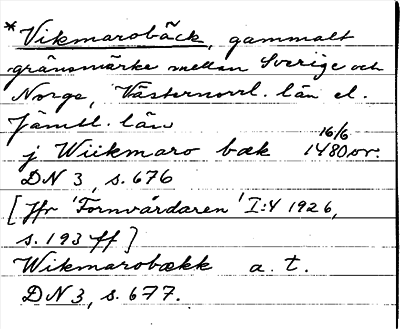 * Vikmarobäck, gammalt
gränsmärke mellan Sverige och
Norge, Västernorrl. län el.
Jämtl. län
j Wiikmaro bæk 16/6 1480 or.
DN 3, s. 676
[Jfr 'Fornvårdaren' I:4 1926,
s. 193 ff]
Wikmarobækk a. t.
DN 3, s. 677.